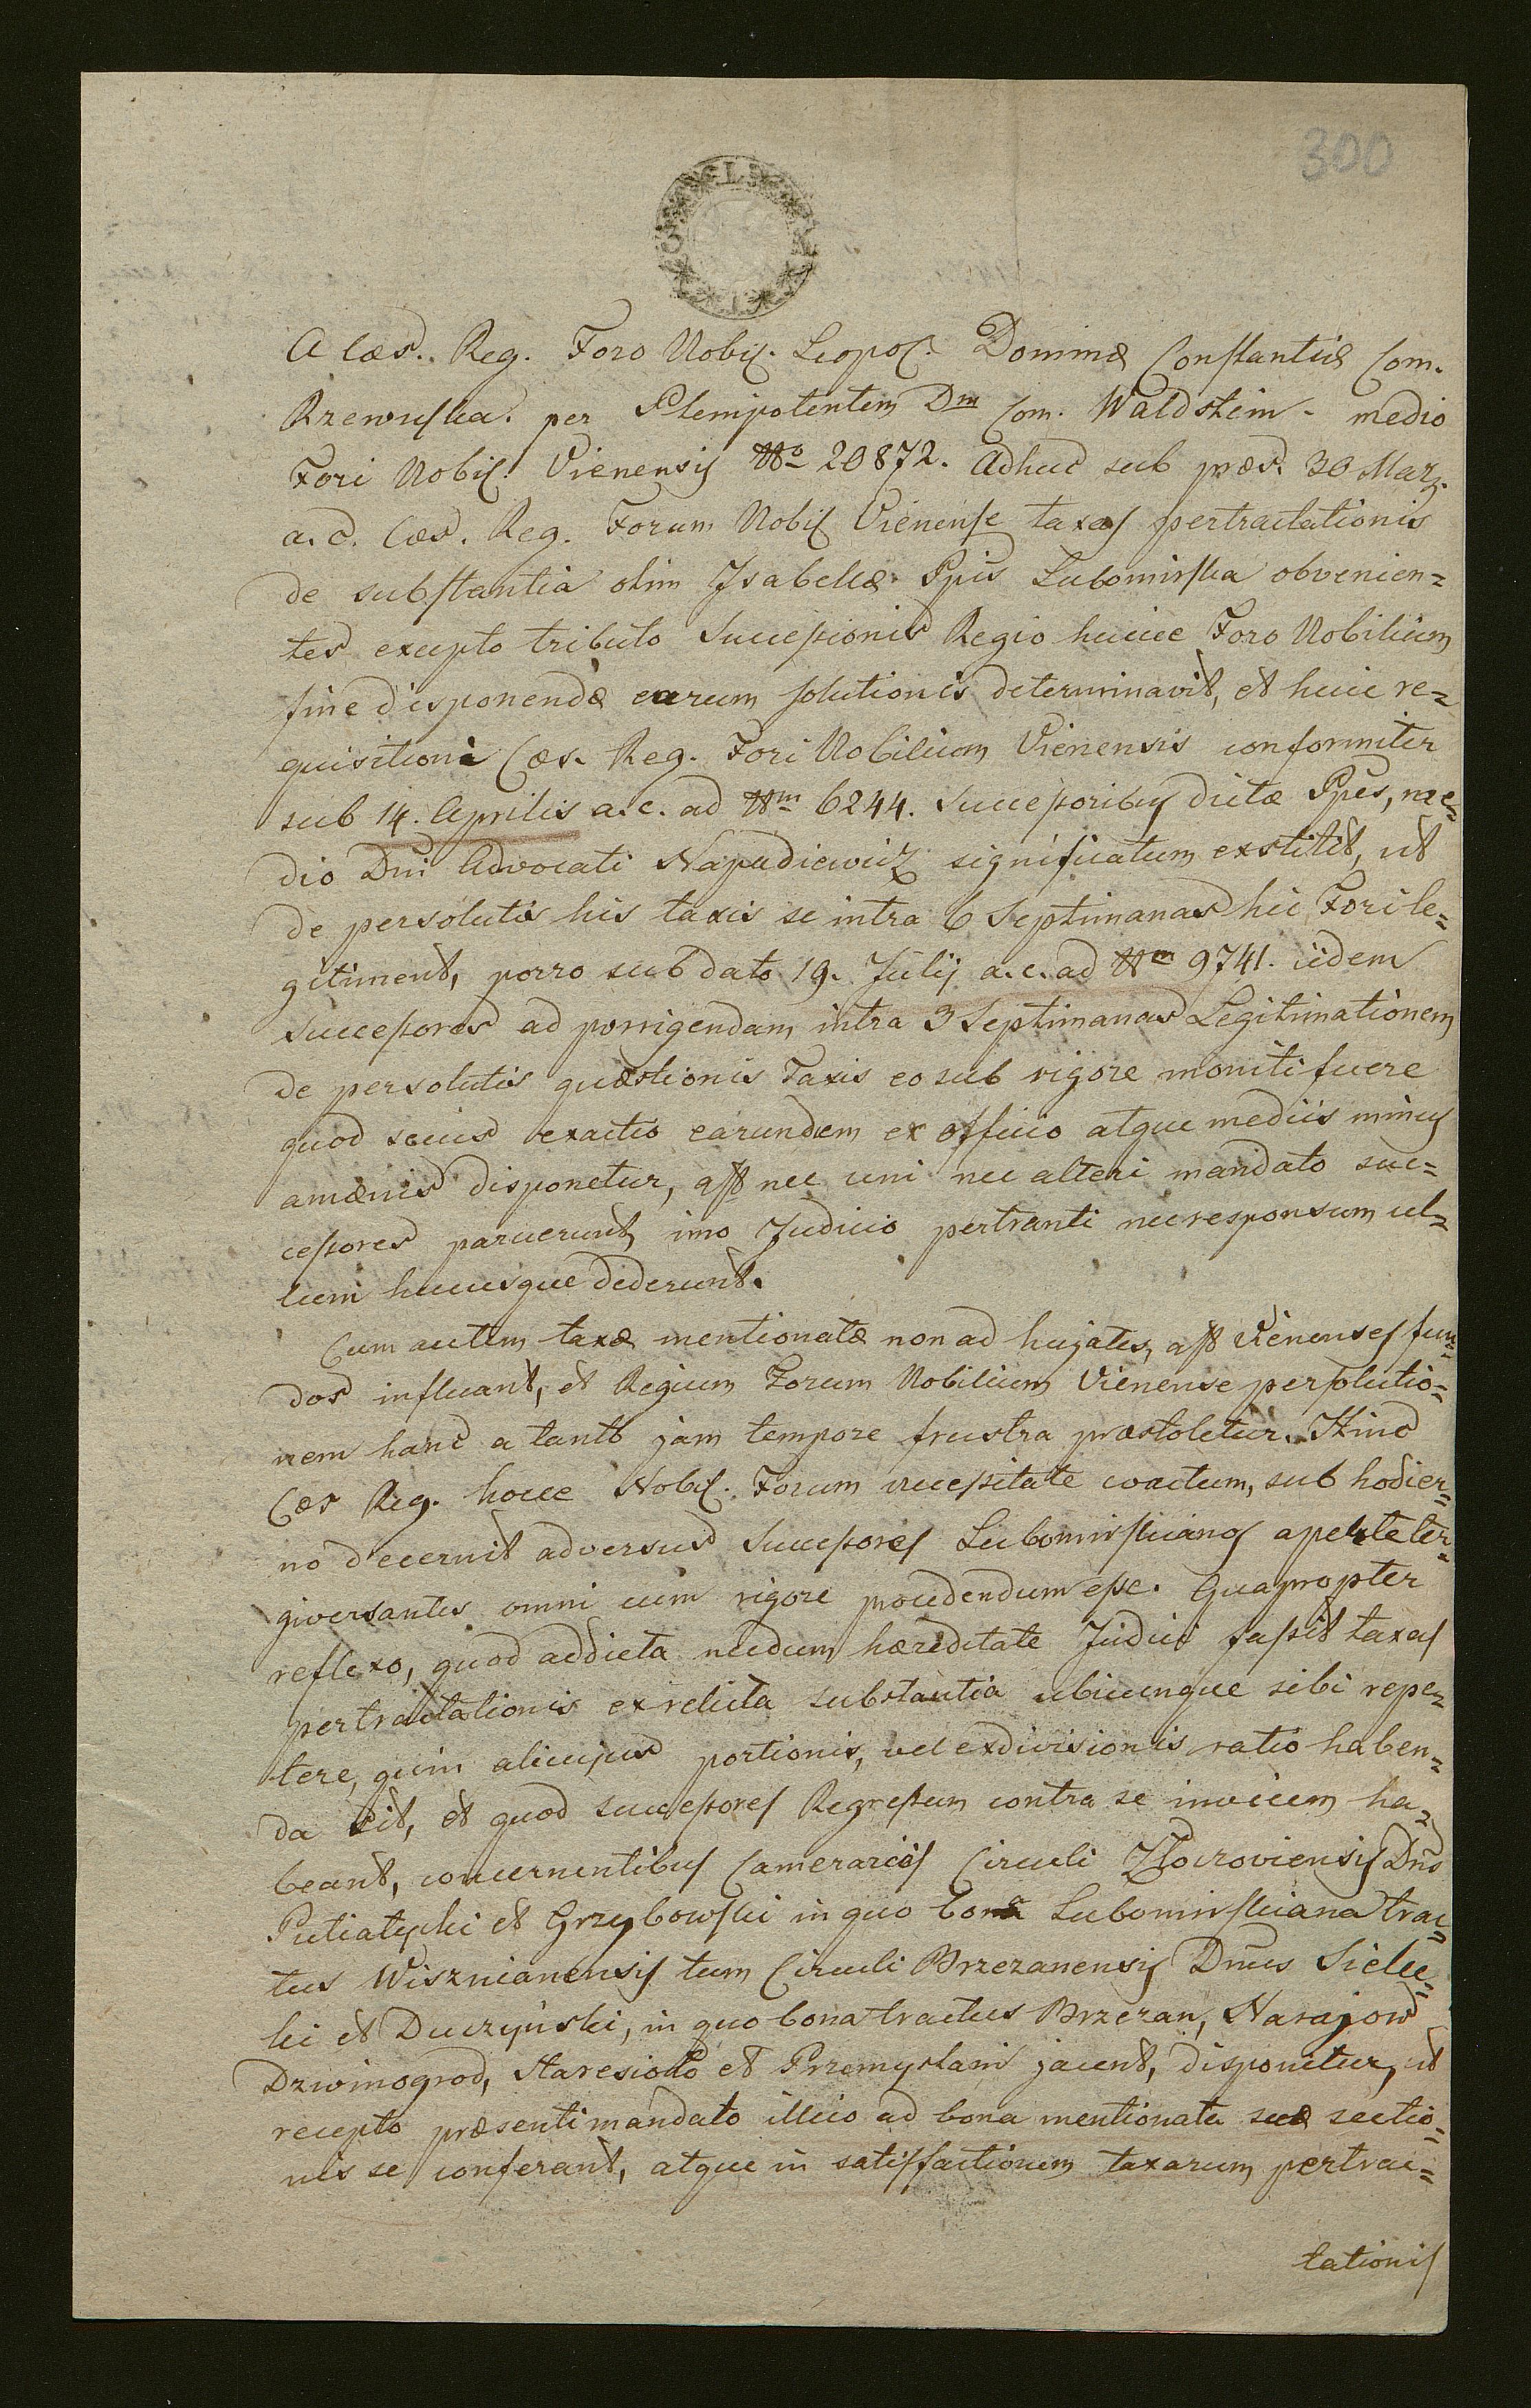 300
A Cæs. Reg. Foro Nobil. Leopol. Dominæ Constantiæ Com.
Rzewuska per Plenipotentem Dm Com. Waldstein - medio
Fori Nobil. Vienensis No 20872. Adhuc sub præs. 30 Marz.
a. c. Cæs. Reg. Forum Nobil Vienense taxas pertractationis
de substantia olim Isabellæ Ppis Lubomirska obvenien=
tes excepto tributo Successionis Regio huicce Foro Nobilium
fine disponendæ earum solutionis determinavit, et huic re=
quisitioni Cæs. Reg. Fori Nobilium Vienensis conformiter
sub 14. Aprilis a. c. ad Nm 6244. Successoribus dictæ Ppis, me=
dio Dni Advocati Napadiewicz significatum exstitit, ut
de persolutis his taxis se intra 6 Septimanas hic Fori le=
gitiment, porro sub dato 19. Julij a. c. ad Nm 9741. iidem
Successores ad porrigendam intra 3 Septimanas Legitimationem
de persolutis quæstionis Taxis eo sub rigore moniti fuere
quod secus exactio earundem ex officio atque mediis minus
amænis disponetur, ast nec uni nec alteri mandato suc=
cessores paruerunt, imo Judicio pertranti nec responsum ul=
lum hucusque dederunt.
Cum autem taxæ mentionatæ non ad hujates, ast Vienenses fun=
dos influant, et Regium Forum Nobilium Vienense persolutio=
nem hanc a tanto jam tempore frustra præstoletur. Hinc
Cæs Reg. hocce Nobil. Forum necessitate coactum, sub hodier=
no decernit adversus Successores Lubomirscianos aperte ter=
giversantes omni cum rigore procedendum esse. Quapropter
reflexo, quod addicta necdum hæreditate Judici fas sit taxas
pertractationis ex relicta substantia ubicunque sibi repe=
tere, quin alicujus portionis, vel exdivisionis ratio haben=
da sit, et quod successores Regressum contra se invicem ha=
beant, concernentibus Camerariis Circuli Zloczoviensis Dno
Putiatycki et Grzybowski in quo bona Lubomirsciana trac=
tus Wisznianensis tum Circuli Brzezanensis Dnus Siele=
cki et Duczyński, in quo bona tractus Brzezan, Narajow
Dzwinogrod, Staresioło et Przemyslani jacent, disponitur, ut
recepto præsenti mandato illico ad bona mentionata suæ sectio=
nis se conferant, atque in satisfactionem taxarum pertrac=
tationis